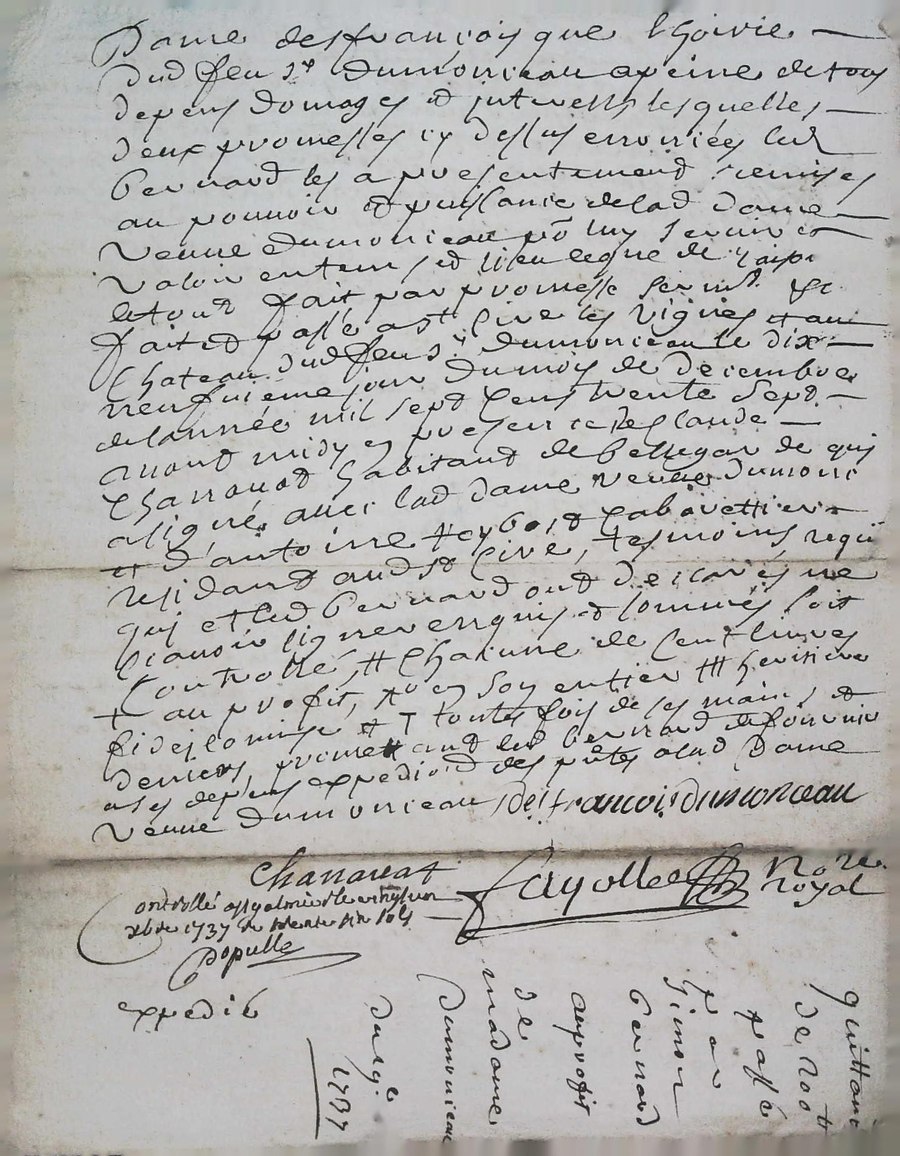 Dame desfrançois que lhoirie
dud feu sr dumonceau a peine de tous
depens domages et interests lesquelles
deux promesses cy dessus enoncées led
bernard les a presentement remises
au pouvoir et puissance de lad dame
veuve dumonceau po luy servir et
valoir en tems et lieu ce que de raison
le tout fait par promesse serm.t &c
fait et passé a st Cire les vignes et au
Chateau dud feu sr dumonceau le dix
neufvieme jour du mois de decembre
de lannée mil sept Cens trente Sept
avant midy en presence de sr claude
Charrouat habitant de bellegar de qui
a signé avec lad dame veuve dumonc
et d'antoine cabarettier
residant aud st Cire, tesmoins requis
qui et led bernard ont declarés ne
scavoir signer enquis et sommés soit
Controllé, # Chacune de Cent livres
+ au profit, en son entier ## heritiere
fideicomise toutes fois de ses mains et
deniers, promettant led bernard de fournir
a ses depens expedion des pntes a lad Dame
veuve dumonceau, desfrancois dumonceau
Charrouat
fayolle Nore
royal
Controllé a st galmier le vingt un
xbre 1737 Rx trente six sols
Populle
expedié
quittance
de 200 #
passé
par
Simon
bernard
au profit
de
madame
dumonceau
du 19e
1737